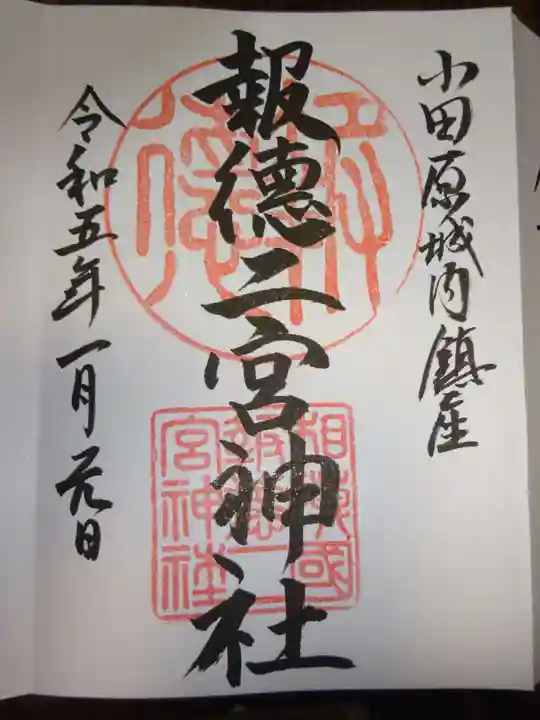 小田原城内鎮座
報徳二宮神社
相模國
報徳二
宮神社
令和五年一月元日